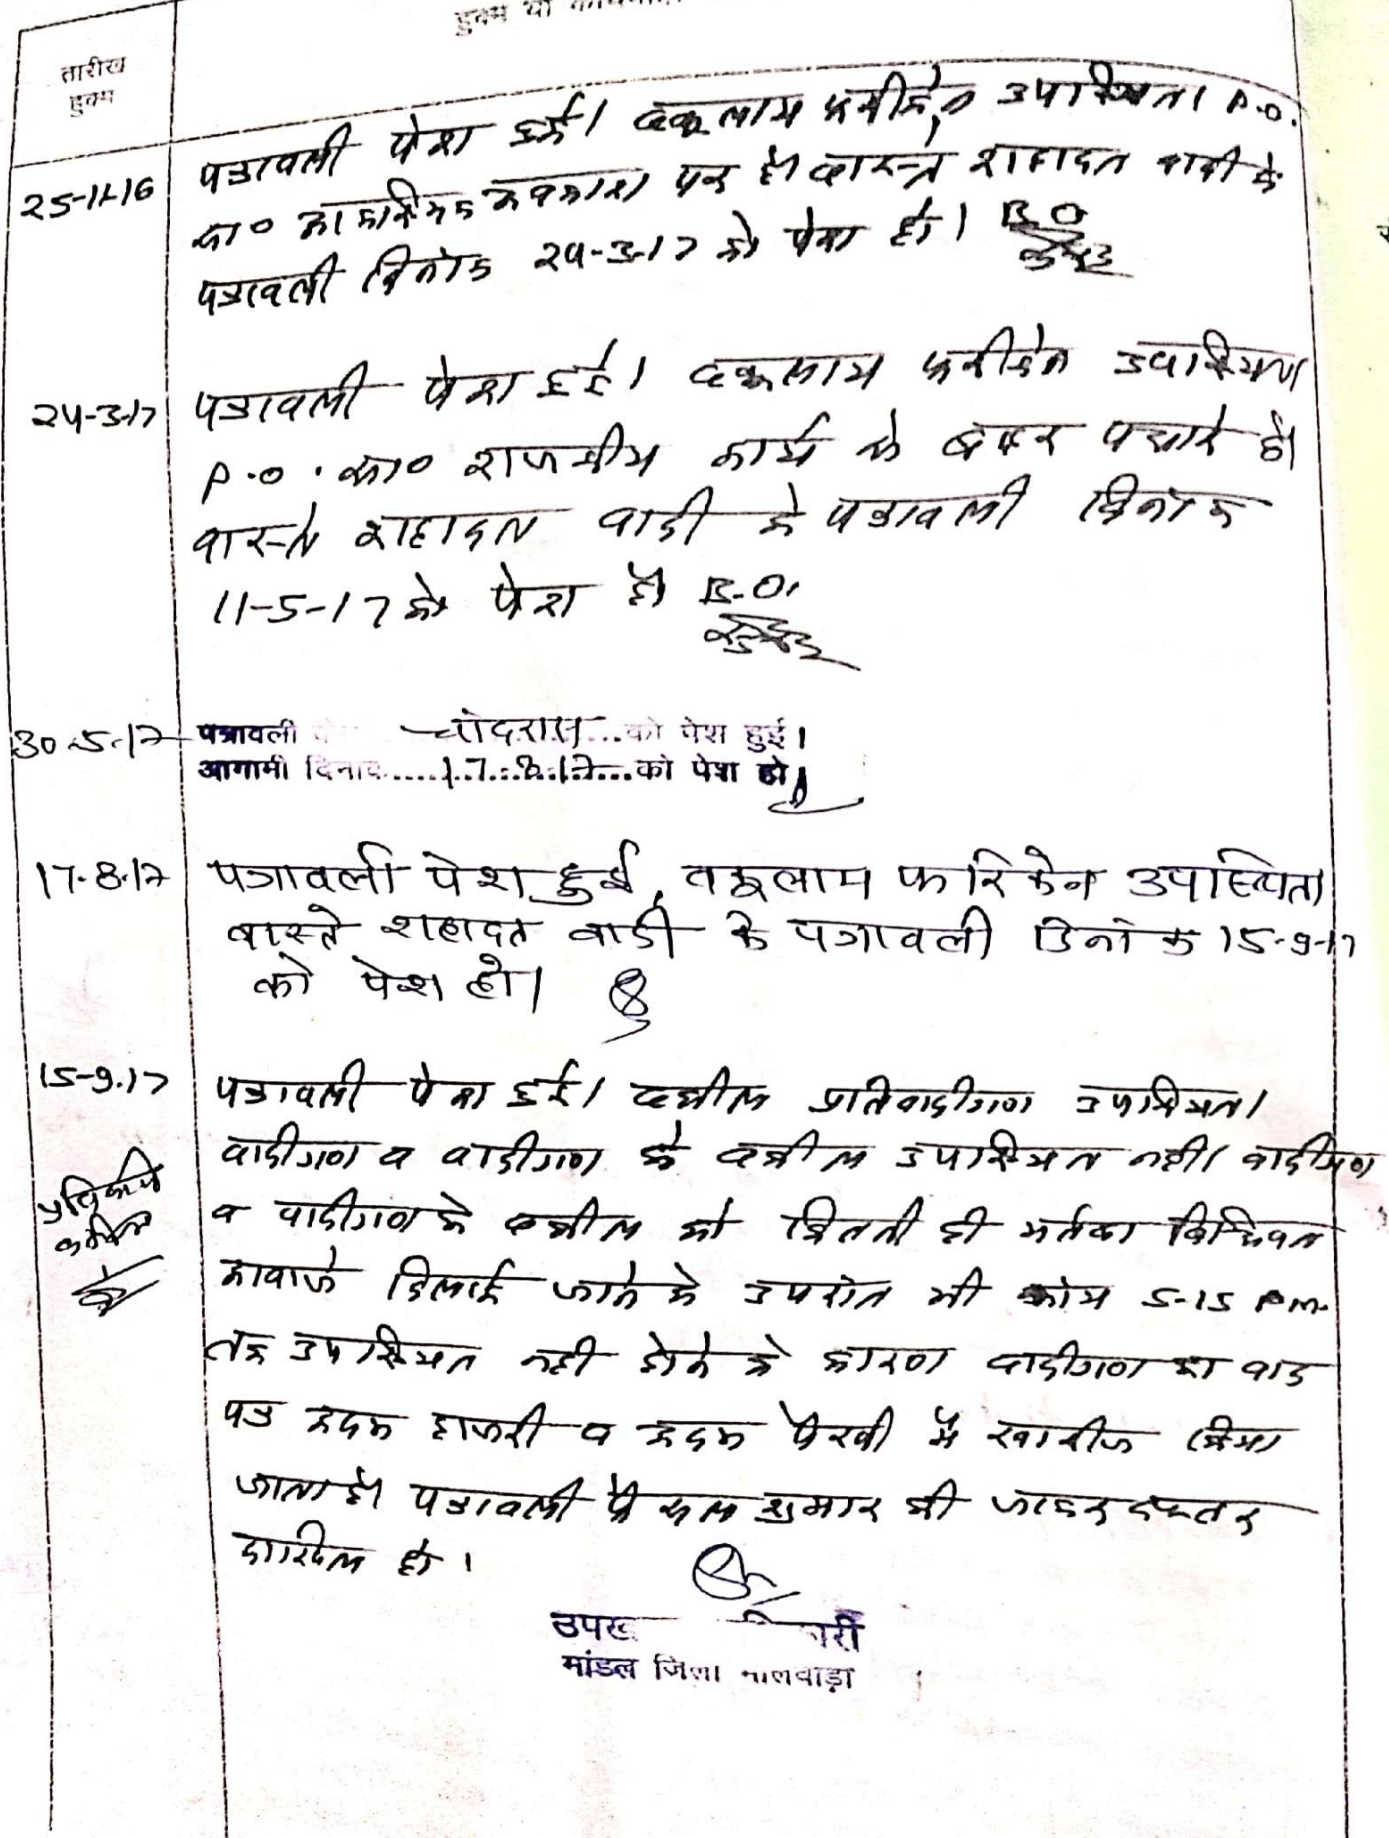 हुक्म या
तारीख
हुक्म
25-11-16 पत्रावली पेश हुई। वकूलाय फरीकेन उपस्थित। P.O.
सा० आकस्मिक अवकाश पर है। वास्ते शहादत वादी के
पत्रावली दिनांक 24-3-17 को पेश हो। B.O
24-3-17 पत्रावली पेश हुई। वकूलाय फरीकेन उपस्थित।
P.O. सा० राजकीय कार्य से बाहर पधारे है।
वास्ते शहादत वादी के पत्रावली दिनांक
11-5-17 को पेश हो। B.O.
30-5-17 पत्रावली चांदरास को पेश हुई।
आगामी दिनांक.....17.8.17...को पेश हो
17.8.17 पत्रावली पेश हुई, वकूलाय फरिकेन उपस्थित।
वास्ते शहादत वादी के पत्रावली दिनांक 15-9-17
को पेश हो।
15-9-17 पत्रावली पेश हुई। वकील प्रतिवादीगण उपस्थित।
वादीगण व वादीगण के वकील उपस्थित नही। वादीगण
व वादीगण के वकील को कितनी ही मर्तबा विधिवत
आवाजे दिलाई जाने के उपरांत भी सांय 5-15 P.m.
तक उपस्थित नही होने के कारण वादीगण का वाद
पत्र अदम हाजरी व अदम पैरवी मे खारीज किया
जाता है। पत्रावली फैसल शुमार की जाकर दफ्तर
दाखिल हो।
उपख री
मांडल जिला भीलवाड़ा